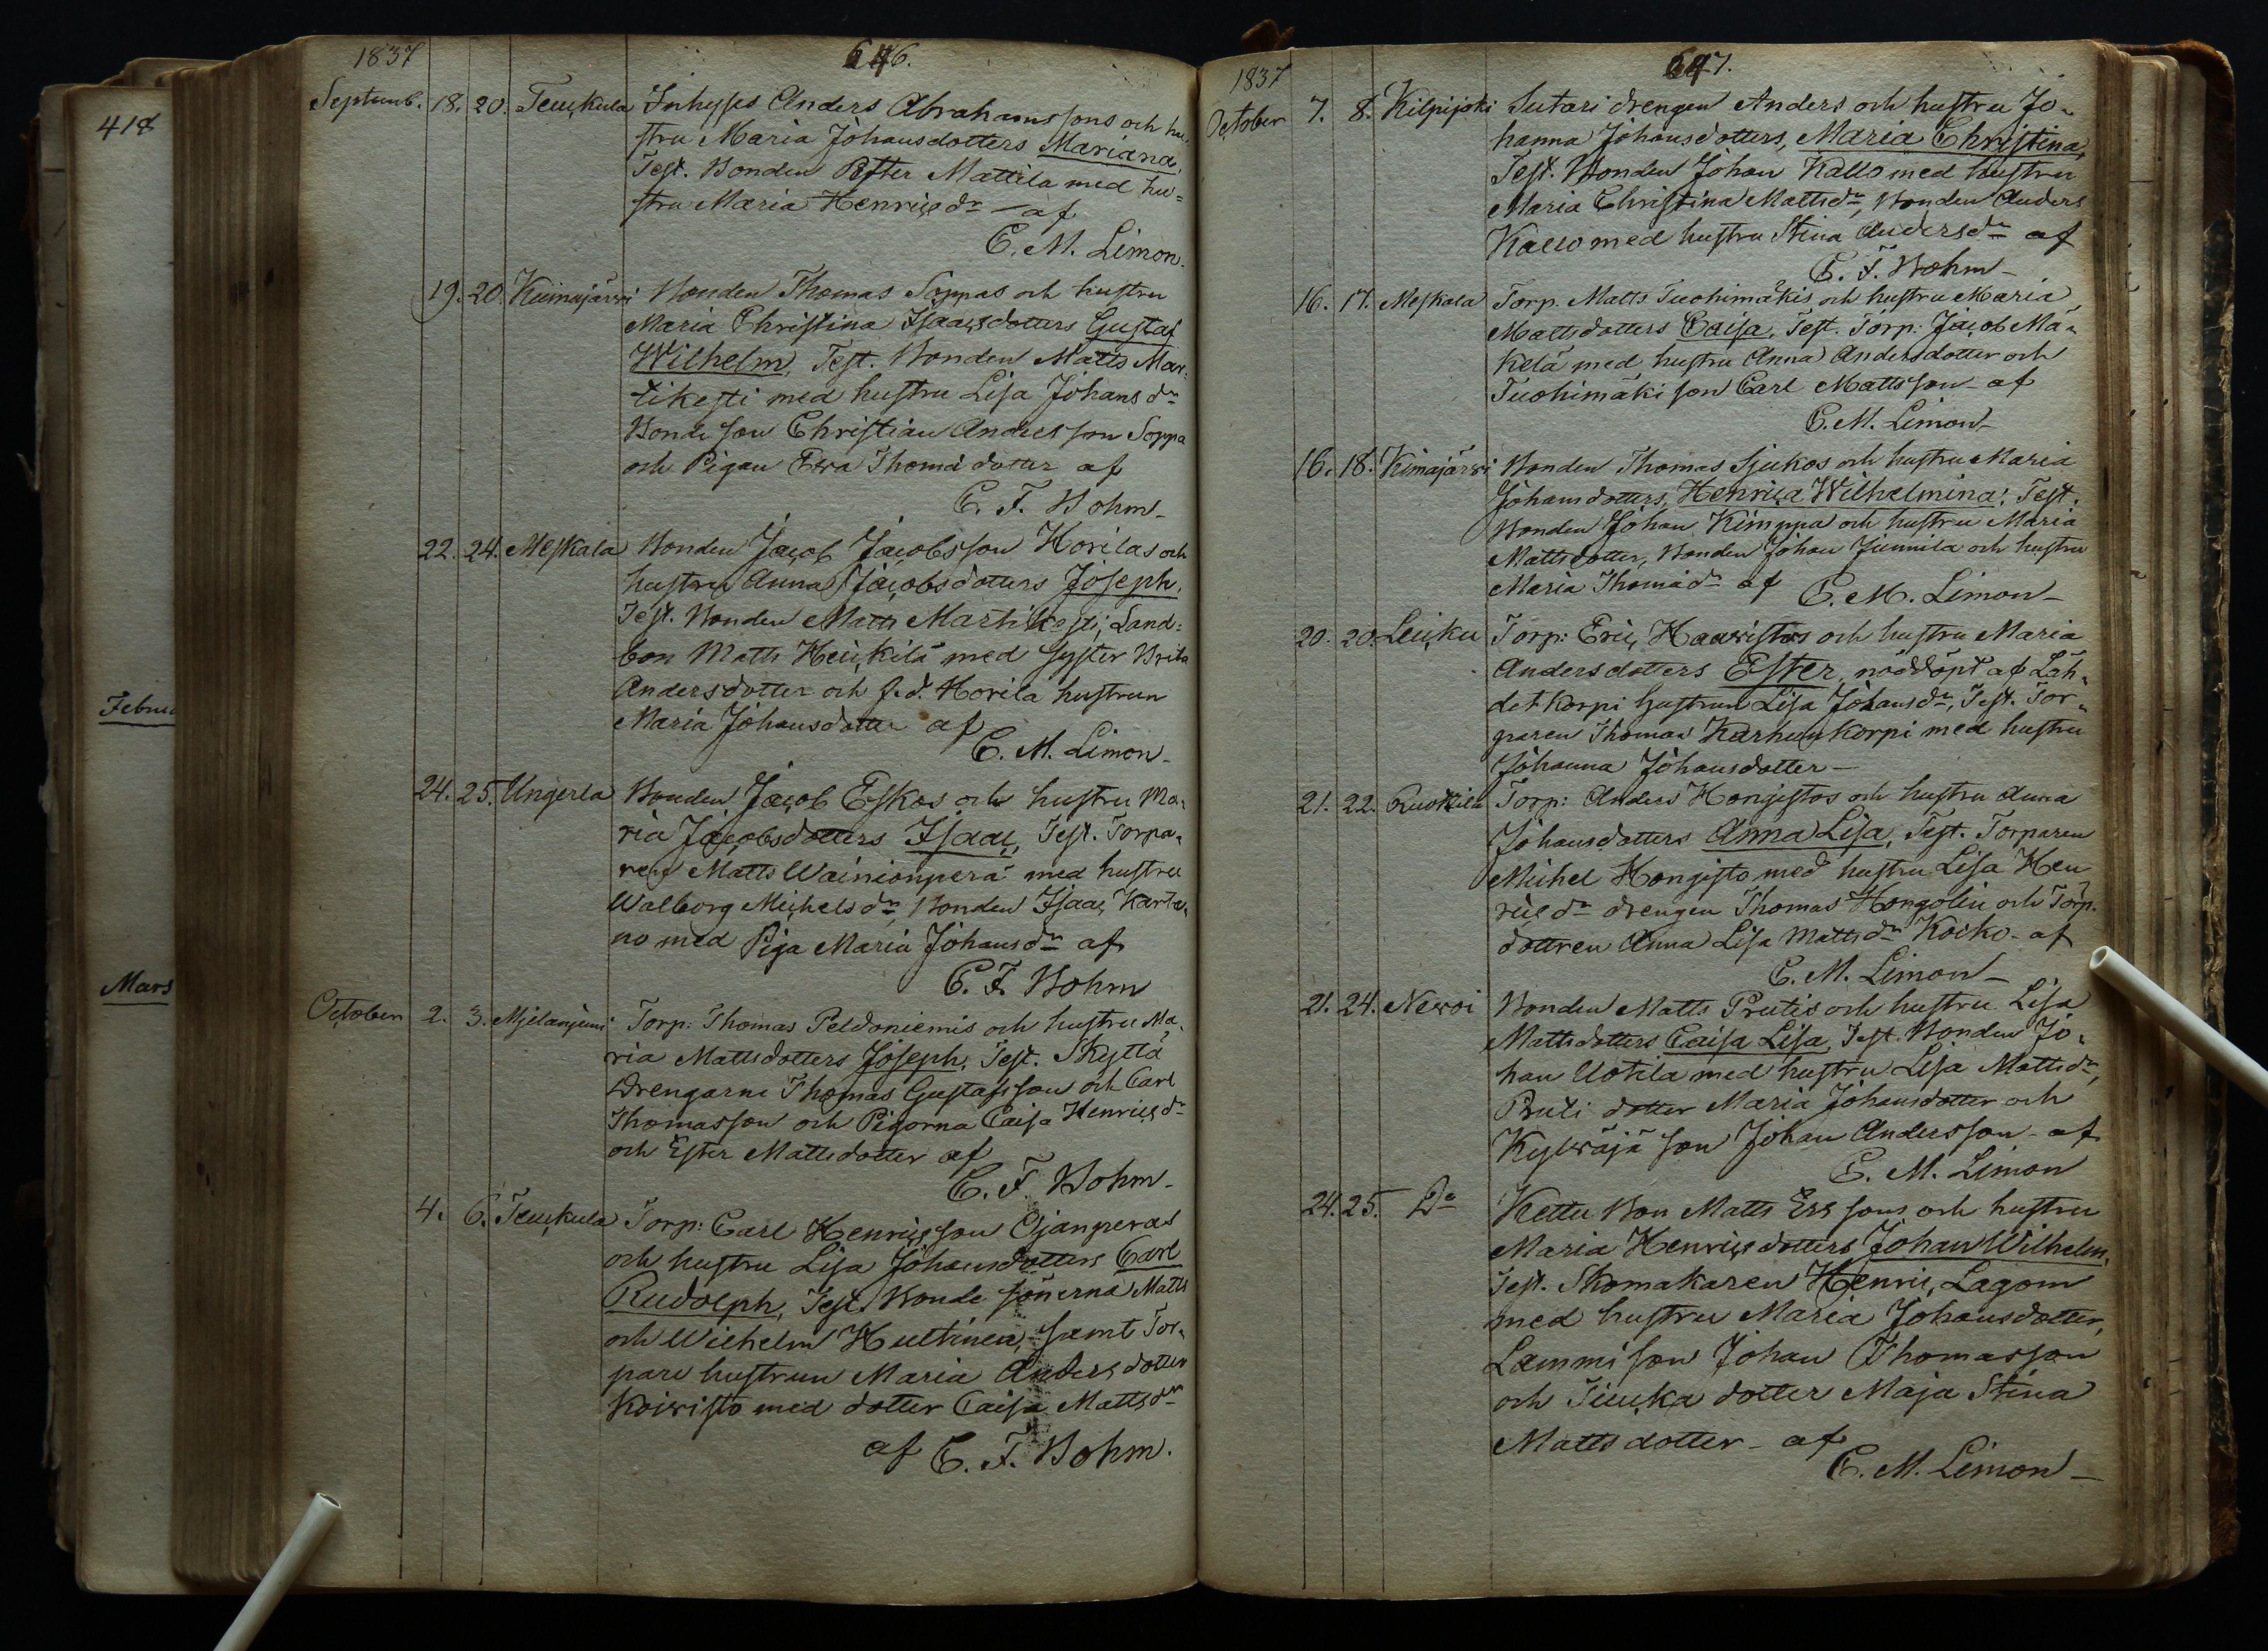 418
Februa
Mars
1837
646.
Septemb. 18. 20. Teuckula Inhyses Anders Abrahamssons och hu-
stru Maria Johansdotters Mariana,
Test. Bonden Petter Mattila med hu-
stru Maria Henricsdr af
C. M. Limon.
19. 20. Kuimajärwi Bonden Thomas Soppas och hustru
Maria Christina Isaacsdotters Gustaf
Wilhelm, Test. Bonden Matts Mar-
tikesti med hustru Lisa Johansdr
Bonde son Christian Andersson Soppa
och Pigan Ewa Thomädotter af
C. F. Bohm-
22. 24. Meskala Bonden Jacob Jacobsson Horilas och
hustru Anna Jacobsdotters Joseph.
Test. Bonden Matts Martikesti, Land-
bon Matts Heickilä med syster Brita
Andersdotter och f.d. Horila hustrun
Maria Johansdotter af
C. M. Limon-
24. 25. Ungerla Bonden Jacob Eskos och hustru Ma-
ria Jacobsdotters Isaac, Test. Torpa-
ren Matts Wainionperä med hustru
Walborg Michelsdr, Bonden Isaac Karta-
no med Piga Maria Johansdr af
C. F. Bohm
October 2. 3. Torp: Thomas Peldoniemis och hustru Ma-
ria Mattsdotters Joseph, Test. Skyttä
Drengarne Thomas Gustafsson och Carl
Thomasson och Pigorna Caisa Henricsdr
och Ester Mattsdotter af
C. F. Bohm-
4. 6. Teuckula Torp: Carl Henricsson Ojanperas
och hustru Lisa Johansdotters Carl
Rudolph, Test. Bonde sönerna Matts
och Wilhelm Hultinen, samt Tor-
pare hustrun Maria Andersdotter
Koiwisto med dotter Caisa Mattsdr
af C. F. Bohm.
1837
647.
October 7. 8. Kilpijoki Sutari drengen Anders och hustru Jo-
hanna Johansdotters, Maria Christina,
Test. Bonden Johan Kallo med hustru
Maria Christina Mattsdr, Bonden Anders
Kallo med hustru Stina Andersdr af
C. F. Bohm-
16. 17. Meskala Torp. Matts Tuohimäkis och hustru Maria
Mattsdotters Caisa, Test. Torp: Jacob Mä-
kelä med hustru Anna Andersdotter och
Tuohimäki son Carl Mattsson af
C. M. Limon-
16. 18. Kimajärwi Bonden Thomas Sjukos och hustru Maria
Johansdotters, Henrica Wilhelmina, Test.
Bonden Johan Kimppa och hustru Maria
Mattsdotter, Bonden Johan Junnila och hustru
Maria Thomädr af C. M. Limon-
20. 20. Leicku Torp: Eric Haawistos och hustru Maria
Andersdotters Ester, nöddöpt af Läh-
det korpi hustrun Lisa Johansdr, Test. Tor-
paren Thomas Karhunkorpi med hustru
Johanna Johansdotter-
21. 22. Ruokila Torp: Anders Hongistos och hustru Anna
Johansdotters Anna Lisa, Test. Torparen
Michel Hongisto med hustru Lisa Hen
ricsdr drengen Thomas Hongolin och Torp.
dottren Anna Lisa Mattsdr Koiko- af
C. M. Limon-
21. 24. Newoi Bonden Matts Prutis och hustru Lisa
Mattsdotters Caisa Lisa, Test. Bonden Jo-
han Uotila med hustru Lisa Mattsdr,
Pruti dotter Maria Johansdotter och
Kylwäjä son Johan Andersson- af
C. M. Limon
24. 25. Do Kettu Bon Matts Ers sons och hustru
Maria Henricsdotters Johan Wilhelm,
Test. Skomakaren Henric Lagom
med hustru Maria Johansdotter,
Lammi son Johan Thomasson
och Tiucka dotter Maja Stina
Mattsdotter- af
C. M. Limon-